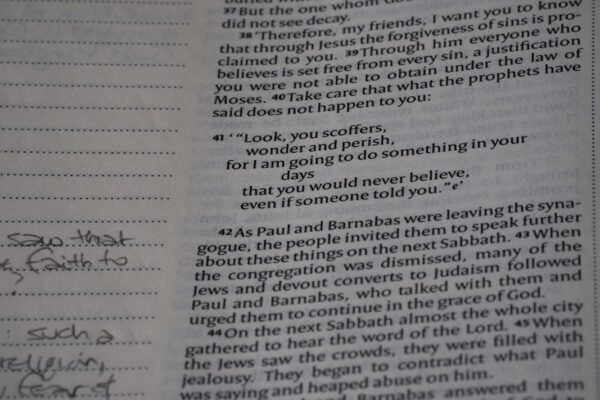 37 But the one whom God
did not see decay.
38 'Therefore, my friends, I want you to know
that through Jesus the forgiveness of sins is pro-
claimed to you. 39 Through him everyone who
believes is set free from every sin, a justification
you were not able to obtain under the law of
Moses. 40 Take care that what the prophets have
said does not happen to you:
41 ' "Look, you scoffers,
wonder and perish,
for I am going to do something in your
days
that you would never believe,
even if someone told you." e'
42 As Paul and Barnabas were leaving the syna-
gogue, the people invited them to speak further
about these things on the next Sabbath. 43 When
the congregation was dismissed, many of the
Jews and devout converts to Judaism followed
Paul and Barnabas, who talked with them and
urged them to continue in the grace of God.
44 On the next Sabbath almost the whole city
gathered to hear the word of the Lord. 45 When
the Jews saw the crowds, they were filled with
jealousy. They began to contradict what Paul
was saying and heaped abuse on him.
Barnabas answered them
saw that
faith to
: such a
fear of